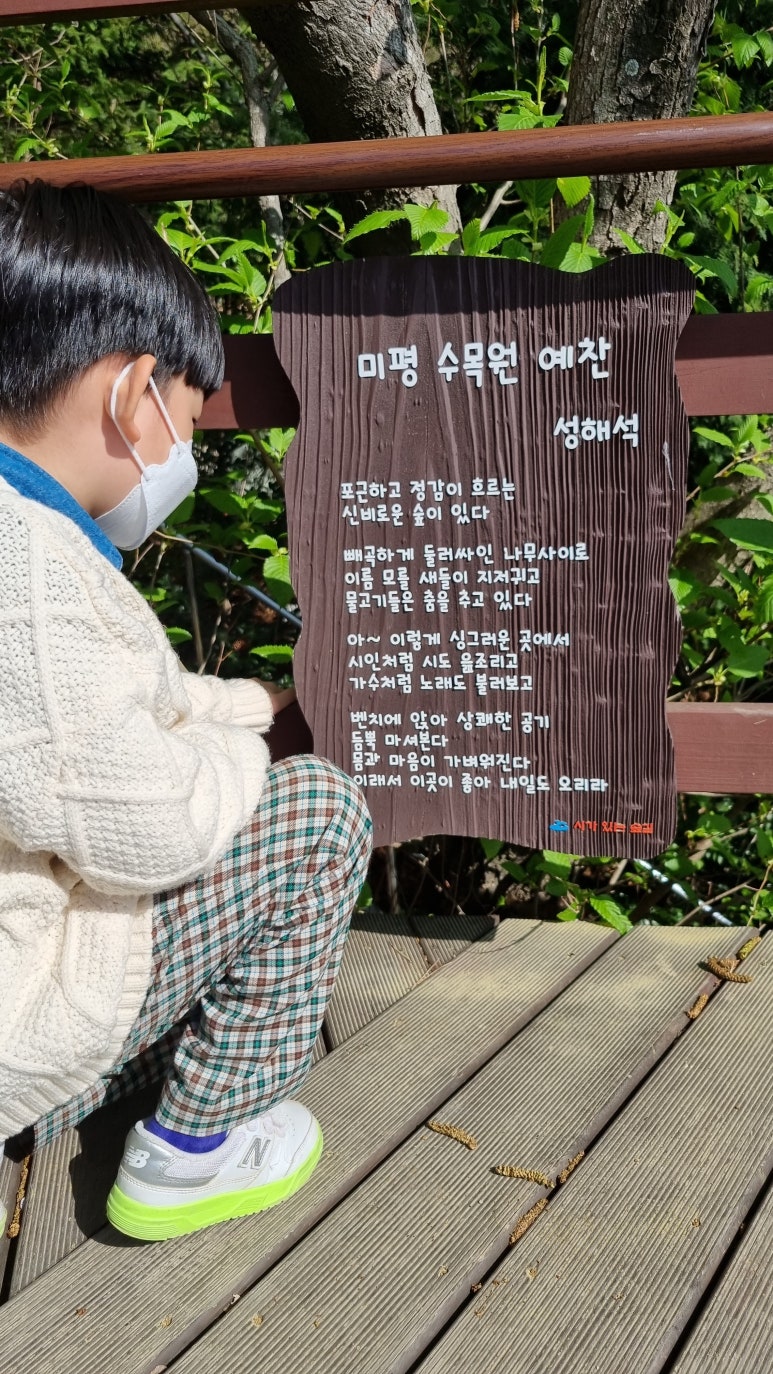 미평 수목원 예찬
성해석
포근하고 정감이 흐르는
신비로운 숲이 있다
빼곡하게 들러싸인 나무사이로
이름 모를 새들이 지저귀고
물고기들은 춤을 추고 있다
아~ 이렇게 싱그러운 곳에서
시인처럼 시도 읊조리고
가수처럼 노래도 불러보고
벤치에 앉아 상쾌한 공기
듬뿍 마셔본다
몸과 마음이 가벼워진다
이래서 이곳이 좋아 내일도 오리라
시가 있는 숲길
N